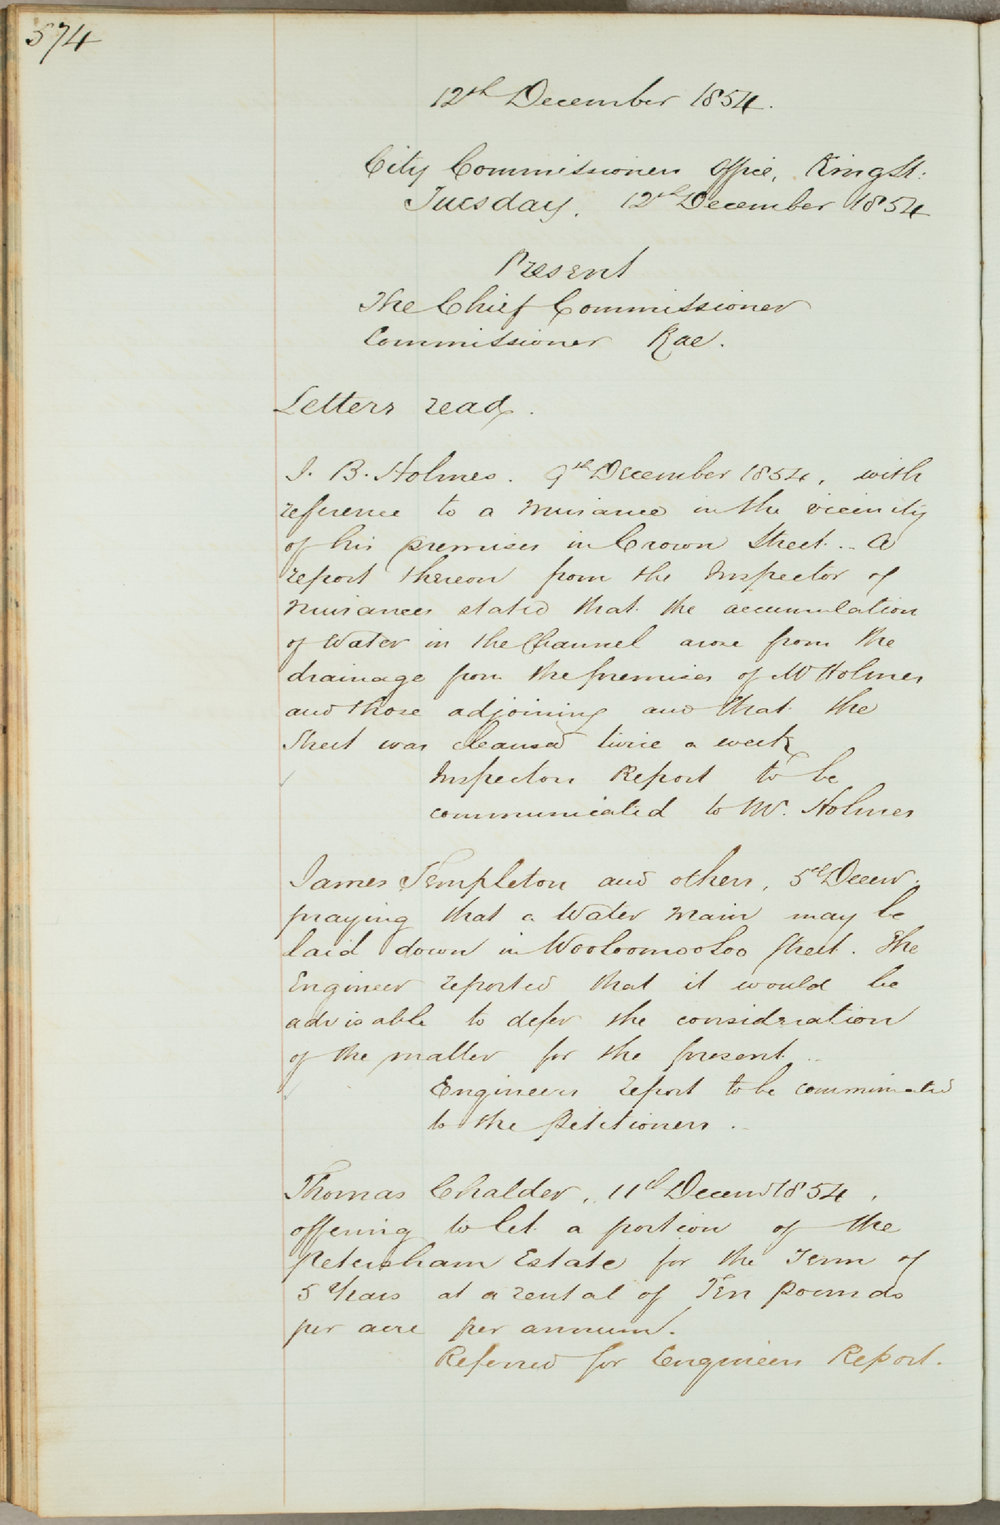 574
12th December 1854.
City Commissioners Office, King St.
Tuesday, 12th December 1854
Present
The Chief Commissioner
Commissioner Rae.
Letters read.
J. B. Holmes. 9th December 1854, with
reference to a nuisance in the vicinity
of his premises in Crown Street.. A
report thereon from the Inspector of
nuisances stated that the accumulation
of Water in the Channel arose from the
drainage from the premises of Mr Holmes
and those adjoining and that the
Street was cleansed twice a week
Inspectors Report to be
communicated to Mr. Holmes
James Templeton and others, 5th Decemr.
praying that a Water main may be
laid down in Wooloomooloo Street. The
Engineer reported that it would be
advisable to defer the consideration
of the matter for the present..
Engineers report to be communicated
to the Petitioners..
Thomas Chalder, 11th Decemr 1854,
offering to let a portion of the
Petersham Estate for the Term of
5 Years at a rental of Ten pounds
per acre per annum.
Referred for Engineers Report.